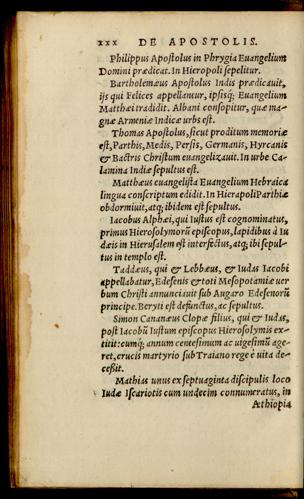 xxx DE APOSTOLIS.
Philippus Apostolus in Phrygia Euangelium
Domini prædicat. In Hieropoli sepelitur.
Bartholemæus Apostolus Indis prædicauit,
ijs qui Felices appellantur, ipsisq; Euangelium
Matthæi tradidit. Albani consopitur, quæ ma-
gnæ Armeniæ Indicæ urbs est.
Thomas Apostolus, sicut proditum memoriæ
est, Parthis, Medis, Persis, Germanis, Hyrcanis
& Bactris Christum euangelizauit. In urbe Ca-
lamina Indiæ sepultus est.
Matthæus euangelista Euangelium Hebraica
lingua conscriptum edidit. In Hierapoli Parthiæ
obdormiuit, atq; ibidem est sepultus.
Iacobus Alphæi, qui Iustus est cognominatus,
primus Hierosolymorũ episcopus, lapidibus à Iu
dæis in Hierusalem est interfectus, atq; ibi sepul-
tus in templo est.
Taddæus, qui & Lebbæus, & Iudas Iacobi
appellabatur, Edesenis & toti Mesopotamiæ uer
bum Christi annunciauit sub Augaro Edesenorũ
principe. Beryti est defunctus, ac sepultus.
Simon Cananæus Clopæ filius, qui & Iudas,
post Iacobũ Iustum episcopus Hierosolymis ex-
titit: eumq; annum centesimum ac uigesimũ age-
ret, crucis martyrio sub Traiano rege è uita de-
cessit.
Mathias unus ex septuaginta discipulis loco
Iudæ Iscariotis cum undecim connumeratus, in
Æthiopia